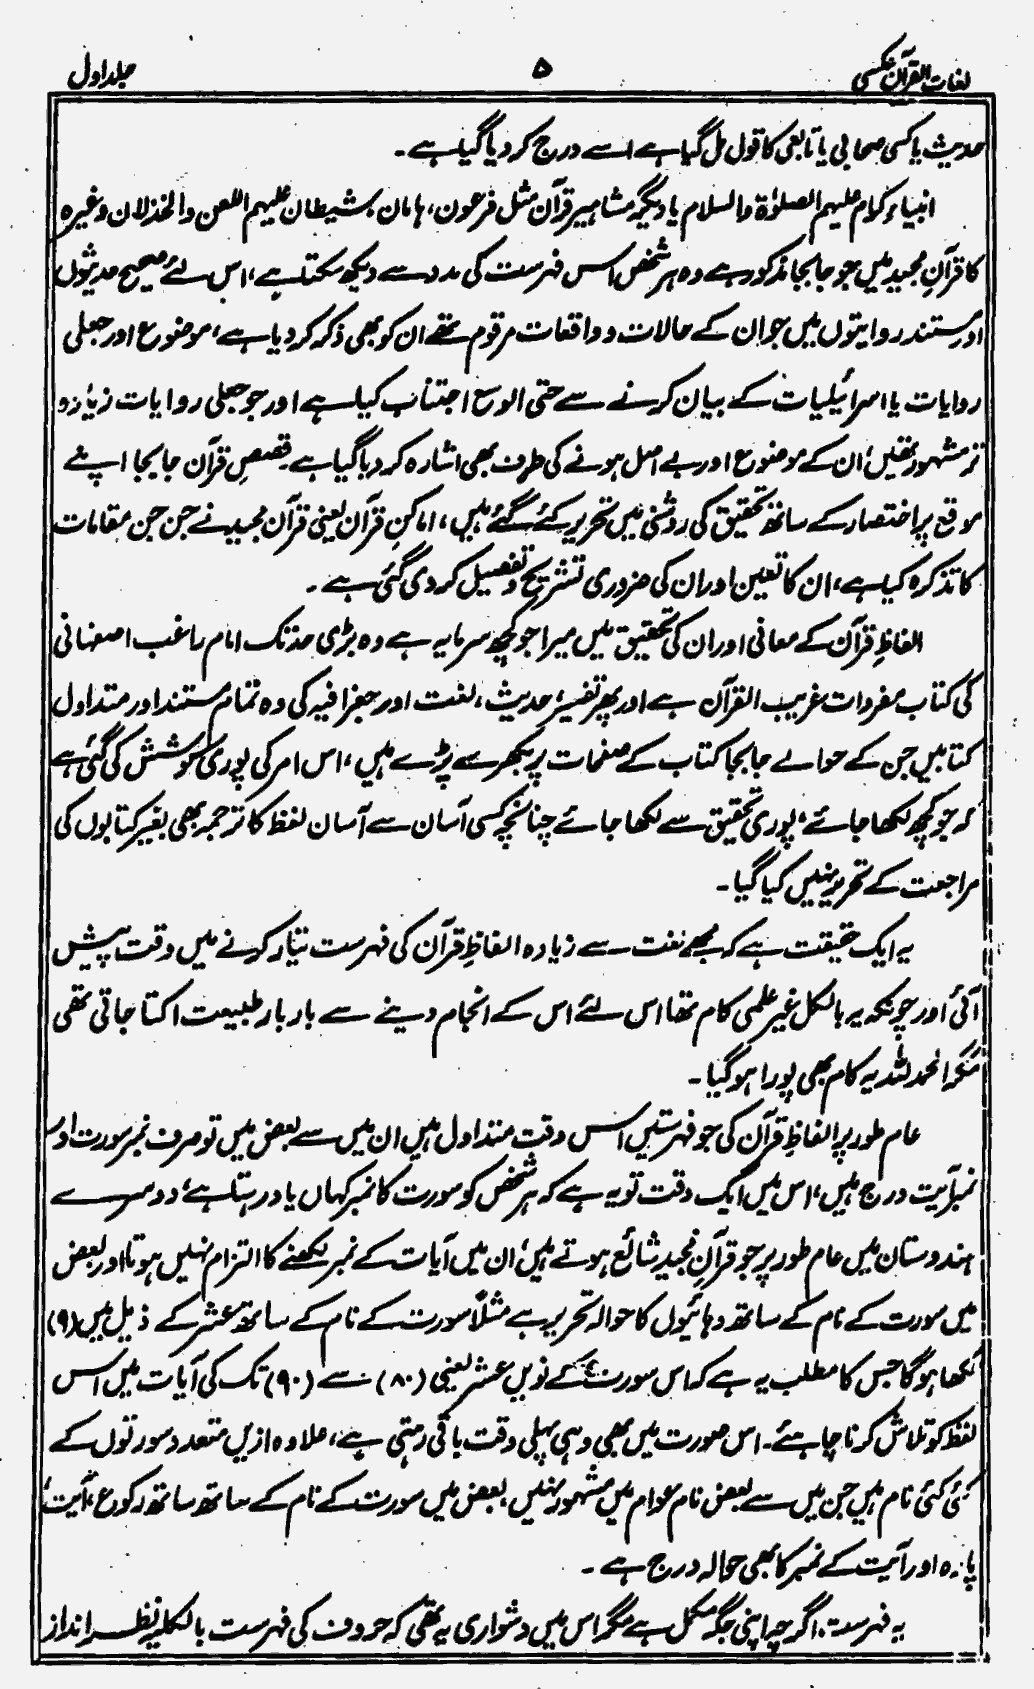 لغات القرآن عکسی
۵
جلد اول
حدیث یا کسی صحابی یا تابعی کا قول مل گیا ہے اسے درج کر دیا گیا ہے۔
انبیاء کرام علیہم الصلوٰۃ والسلام یا دیگر مشاہیر قرآن مثل فرعون، ہامان، شیطان علیہم اللعن والخذلان وغیرہ
کا قرآنِ مجید میں جو جابجا مذکور ہے وہ ہر شخص اس فہرست کی مدد سے دیکھ سکتا ہے، اس لئے صحیح حدیثوں
اور مستند روایتوں میں جو ان کے حالات و واقعات مرقوم تھے ان کو بھی ذکر کر دیا ہے، موضوع اور جعلی
روایات یا اسرائیلیات کے بیان کرنے سے حتی الوسع اجتناب کیا ہے اور جو جعلی روایات زیادہ
تر مشہور تھیں، ان کے موضوع اور بے اصل ہونے کی طرف بھی اشارہ کر دیا گیا ہے۔ قصصِ قرآن جابجا اپنے
موقع پر اختصار کے ساتھ تحقیق کی روشنی میں تحریر کئے گئے ہیں، اماکنِ قرآن یعنی قرآن مجید نے جن جن مقامات
کا تذکرہ کیا ہے، ان کا تعین اور ان کی ضروری تشریح و تفصیل کر دی گئی ہے۔
الفاظِ قرآن کے معانی اور ان کی تحقیق میں میرا جو کچھ سرمایہ ہے وہ بڑی حد تک امام راغب اصفہانی
کی کتاب مفردات غریب القرآن ہے اور پھر تفسیر، حدیث، لغت اور جغرافیہ کی وہ تمام مستند اور متداول
کتابیں جن کے حوالے جابجا کتاب کے صفحات پر بکھرے پڑے ہیں، اس امر کی پوری کوشش کی گئی ہے
کہ جو کچھ لکھا جائے، پوری تحقیق سے لکھا جائے چنانچہ کسی آسان سے آسان لفظ کا ترجمہ بھی بغیر کتابوں کی
مراجعت کے تحریر نہیں کیا گیا۔
یہ ایک حقیقت ہے کہ مجھے لغت سے زیادہ الفاظِ قرآن کی فہرست تیار کرنے میں دقت پیش
آئی اور چونکہ یہ بالکل غیر علمی کام تھا اس لئے اس کے انجام دینے سے بار بار طبیعت اکتا جاتی تھی
مگر الحمدللہ یہ کام بھی پورا ہو گیا۔
عام طور پر الفاظِ قرآن کی جو فہرستیں اس وقت متداول ہیں ان میں سے بعض میں تو صرف نمبر سورت اور
نمبر آیت درج ہیں، اس میں ایک دقت تو یہ ہے کہ ہر شخص کو سورت کا نمبر کہاں یاد رہتا ہے، دوسرے
ہندوستان میں عام طور پر جو قرآنِ مجید شائع ہوتے ہیں، ان میں آیات کے نمبر لکھنے کا التزام نہیں ہوتا اور بعض
میں سورت کے نام کے ساتھ دہائیوں کا حوالہ تحریر ہے مثلاً سورت کے نام کے ساتھ عشر کے ذیل میں (۹)
لکھا ہو گا جس کا مطلب یہ ہے کہ اس سورت کے نویں عشر یعنی (۸۰) سے (۹۰) تک کی آیات میں اس
لفظ کو تلاش کرنا چاہئے۔ اس صورت میں بھی وہی پہلی دقت باقی رہتی ہے، علاوہ ازیں متعدد سورتوں کے
کئی کئی نام ہیں جن میں سے بعض نام عوام میں مشہور نہیں، بعض میں سورت کے نام کے ساتھ ساتھ رکوع، آیت،
پارہ اور آیت کے نمبر کا بھی حوالہ درج ہے۔
یہ فہرست، اگرچہ اپنی جگہ مکمل ہے مگر اس میں دشواری یہ تھی کہ حروف کی فہرست بالکلیہ نظر انداز